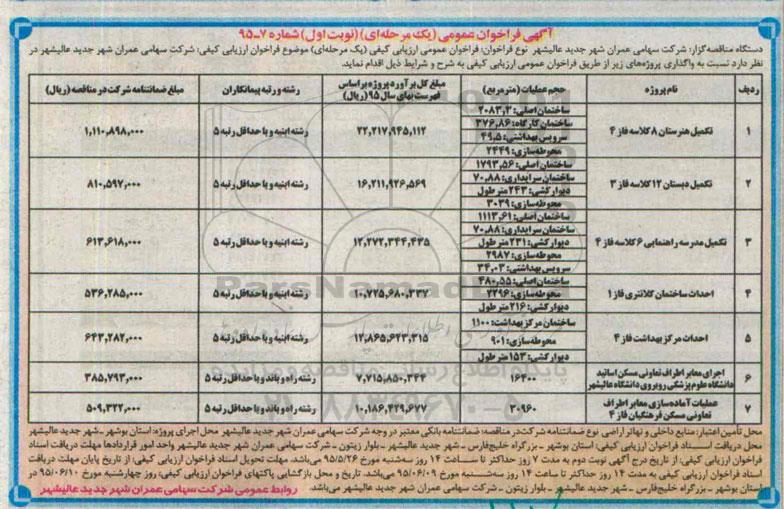 آگهی فراخوان عمومی (یک مرحله‌ای) (نوبت اول) شماره ۷ـ۹۵
دستگاه مناقصه‌گزار: شرکت سهامی عمران شهر جدید عالیشهر نوع فراخوان: فراخوان عمومی ارزیابی کیفی (یک مرحله‌ای) موضوع فراخوان ارزیابی کیفی: شرکت سهامی عمران شهر جدید عالیشهر در
نظر دارد نسبت به واگذاری پروژه‌های زیر از طریق فراخوان عمومی ارزیابی کیفی به شرح و شرایط ذیل اقدام نماید.
ردیف نام پروژه حجم عملیات (مترمربع) مبلغ کل برآورد پروژه براساس فهرست بهای سال ۹۵ (ریال) رشته و رتبه پیمانکاران مبلغ ضمانتنامه شرکت در مناقصه (ریال)
۱ تکمیل هنرستان ۸ کلاسه فاز ۴ ساختمان اصلی: ۲۰۸۳٫۲ ۲۲,۲۱۷,۹۴۵,۱۱۲ رشته ابنیه و با حداقل رتبه ۵ ۱,۱۱۰,۸۹۸,۰۰۰
ساختمان کارگاه: ۳۷۶٫۸۶
سرویس بهداشتی: ۴۹٫۵
محوطه‌سازی: ۲۴۴۹
۲ تکمیل دبستان ۱۲ کلاسه فاز ۳ ساختمان اصلی: ۱۷۹۳٫۵۶ ۱۶,۲۱۱,۹۲۶,۵۶۹ رشته ابنیه و با حداقل رتبه ۵ ۸۱۰,۵۹۷,۰۰۰
ساختمان سرایداری: ۷۰٫۸۸
دیوارکشی: ۲۴۳ متر طول
محوطه‌سازی: ۳۰۳۹
۳ تکمیل مدرسه راهنمایی ۶ کلاسه فاز ۴ ساختمان اصلی: ۱۱۱۳٫۶۱ ۱۲,۲۷۲,۳۴۴,۴۳۵ رشته ابنیه و با حداقل رتبه ۵ ۶۱۳,۶۱۸,۰۰۰
ساختمان سرایداری: ۷۰٫۸۸
دیوارکشی: ۲۳۱ متر طول
محوطه‌سازی: ۲۹۸۷
سرویس بهداشتی: ۳۴٫۰۳
۴ احداث ساختمان کلانتری فاز ۱ ساختمان اصلی: ۴۸۰٫۵۵ ۱۰,۷۲۵,۶۸۰,۳۳۷ رشته ابنیه و با حداقل رتبه ۵ ۵۳۶,۲۸۵,۰۰۰
محوطه‌سازی: ۲۲۹۶
دیوارکشی: ۲۱۶ متر طول
۵ احداث مرکز بهداشت فاز ۴ ساختمان مرکز بهداشت: ۱۱۰۰ ۱۲,۸۶۵,۶۴۳,۳۱۵ رشته ابنیه و با حداقل رتبه ۵ ۶۴۳,۲۸۲,۰۰۰
محوطه‌سازی: ۹۰۱
دیوارکشی: ۱۵۳ متر طول
۶ اجرای معابر اطراف تعاونی مسکن اساتید دانشگاه علوم پزشکی روبروی دانشگاه عالیشهر ۱۶۴۰۰ ۷,۷۱۵,۸۵۰,۳۴۴ رشته راه و باند و با حداقل رتبه ۵ ۳۸۵,۷۹۳,۰۰۰
۷ عملیات آماده‌سازی معابر اطراف تعاونی مسکن فرهنگیان فاز ۴ ۳۰۹۶۰ ۱۰,۱۸۶,۴۲۹,۶۷۷ رشته راه و باند و با حداقل رتبه ۵ ۵۰۹,۳۲۲,۰۰۰
محل تأمین اعتبار: منابع داخلی و تهاتر اراضی نوع ضمانتنامه شرکت در مناقصه: ضمانتنامه بانکی معتبر در وجه شرکت سهامی عمران شهر جدید عالیشهر محل اجرای پروژه: استان بوشهر ـ شهر جدید عالیشهر
محل دریافت اسناد فراخوان ارزیابی کیفی: استان بوشهر ـ بزرگراه خلیج‌فارس ـ شهر جدید عالیشهر ـ بلوار زیتون ـ شرکت سهامی عمران شهر جدید عالیشهر واحد امور قراردادها مهلت دریافت اسناد
فراخوان ارزیابی کیفی: از تاریخ درج آگهی نوبت دوم به مدت ۷ روز حداکثر تا ساعت ۱۴ روز سه‌شنبه مورخ ۹۵/۵/۲۶ می‌باشد. مهلت تحویل اسناد فراخوان ارزیابی کیفی: از تاریخ پایان مهلت دریافت
اسناد فراخوان ارزیابی کیفی به مدت ۱۴ روز حداکثر تا ساعت ۱۴ روز سه‌شنبه مورخ ۹۵/۰۶/۰۹ می‌باشد. تاریخ و محل بازگشایی پاکتهای فراخوان ارزیابی کیفی: روز چهارشنبه مورخ ۹۵/۰۶/۱۰ در
استان بوشهر ـ بزرگراه خلیج‌فارس ـ شهر جدید عالیشهر ـ بلوار زیتون ـ شرکت سهامی عمران شهر جدید عالیشهر می‌باشد.
روابط عمومی شرکت سهامی عمران شهر جدید عالیشهر
ParsNamad
پایگاه اطلاع رسانی مناقصه و مزایده